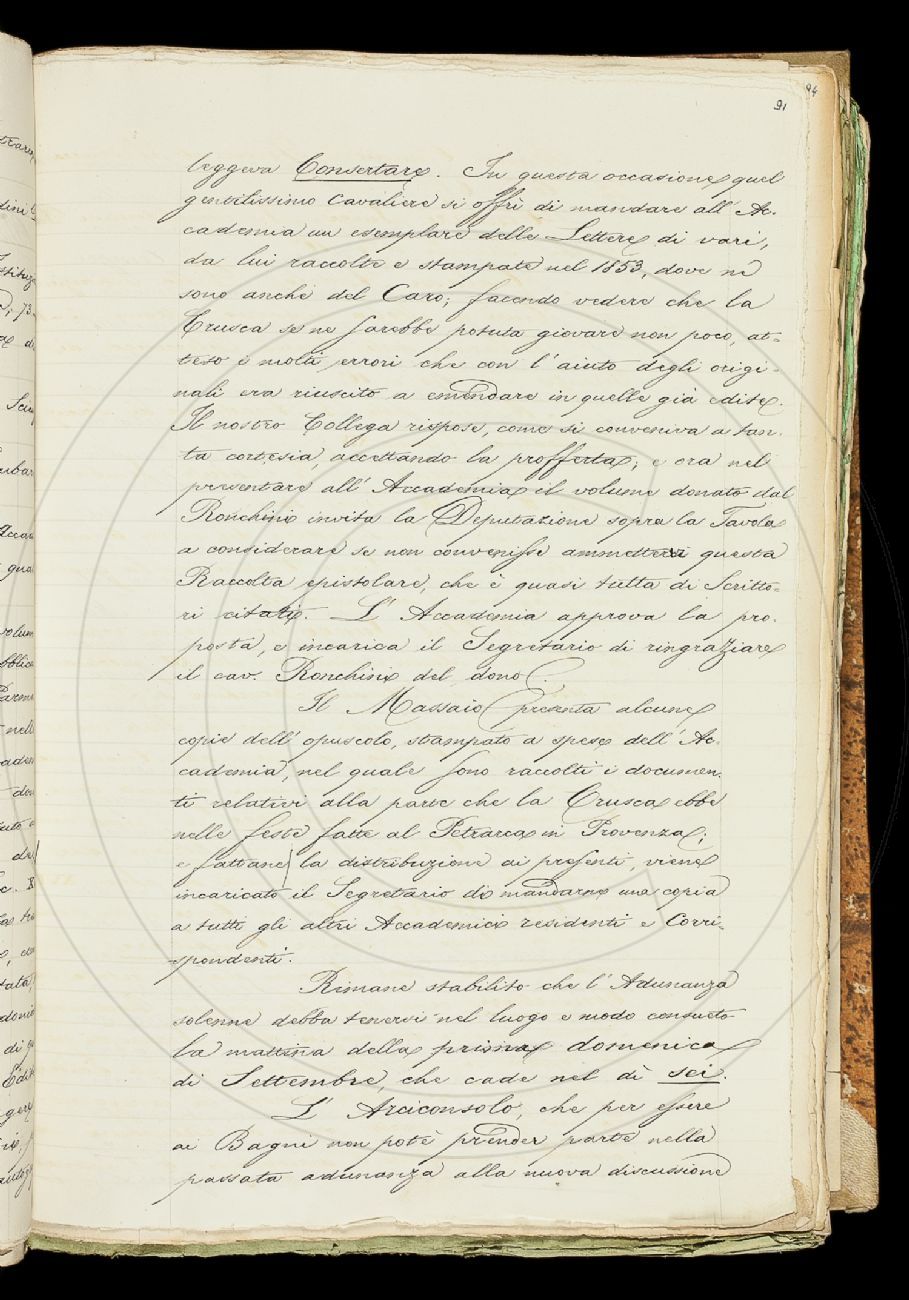 91
94
leggeva Consertare. In questa occasione quel
gentilissimo Cavaliere si offrì di mandare all' Ac-
cademia un esemplare delle Lettere di vari,
da lui raccolte e stampate nel 1853, dove ne
sono anche del Caro; facendo vedere che la
Crusca se ne sarebbe potuta giovare non poco, at-
teso i molti errori che con l' aiuto degli origi-
nali era riuscito a emendare in quelle già edite.
Il nostro Collega rispose, come si conveniva a tan-
ta cortesia, accettando la profferta; e ora nel
presentare all' Accademia il volume donato dal
Ronchini invita la Deputazione sopra la Tavola
a considerare se non convenisse ammettervi questa
Raccolta epistolare, che è quasi tutta di Scritto-
ri citati. L' Accademia approva la pro-
posta, e incarica il Segretario di ringraziare
il cav. Ronchini del dono.
Il Massaio presenta alcune
copie dell' opuscolo, stampato a spese dell' Ac-
cademia, nel quale sono raccolti i documen-
ti relativi alla parte che la Crusca ebbe
nelle feste fatte al Petrarca in Provenza;
e fattane la distribuzione ai presenti, viene
incaricato il Segretario di mandarne una copia
a tutti gli altri Accademici residenti e Corri-
spondenti.
Rimane stabilito che l' Adunanza
solenne debba tenersi nel luogo e modo consueto
la mattina della prima domenica
di Settembre, che cade nel dì sei.
L' Arciconsolo, che per essere
ai Bagni non potè prender parte nella
passata adunanza alla nuova discussione